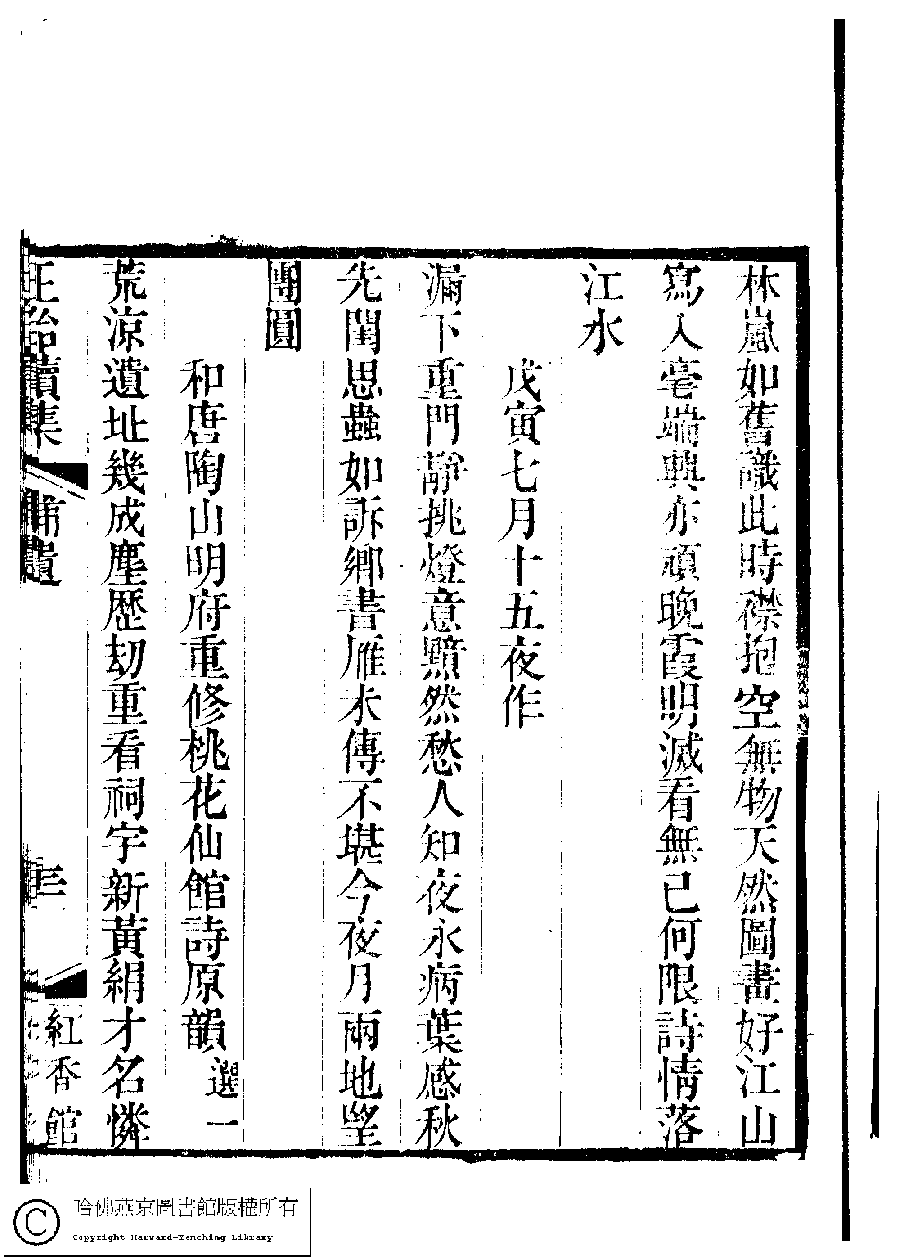 林嵐如舊識此時襟抱空無物天然圖畫好江山
寫入毫端興亦頑晚霞明滅看無已何限詩情落
江水
戊寅七月十五夜作
漏下重門靜挑燈意黯然愁人知夜永病葉感秋
先閨思蟲如訴鄉書雁未傳不堪今夜月兩地望
團圓
和唐陶山明府重修桃花仙館詩原韻 選一
荒涼遺址幾成塵歷刼重看祠宇新黃絹才名憐
續集 補遺 三 紅香館
哈佛燕京圖書館版權所有
Copyright Harvard-Yenching Library